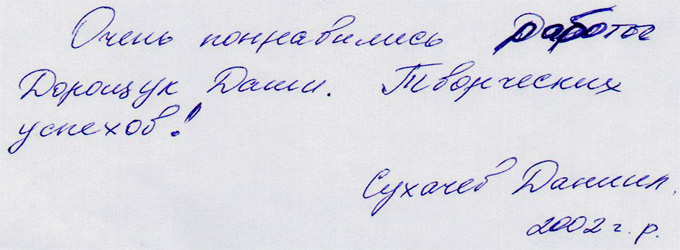 Очень понравились работы
Дорощук Даши. Творческих
успехов!
Сухачев Даниил.
2002 г. р.